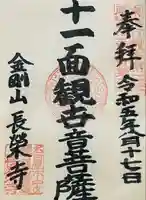 奉拝 令和五年八月十七日
十一面観世音菩薩
金剛山 長榮寺